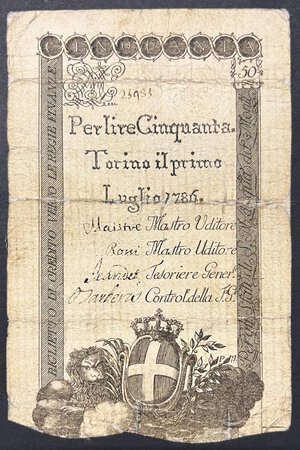 CINQUANTA
50
23933
Per lire Cinquanta.
Torino il primo
Luglio 1786.
Maistre Mastro Uditore
Mastro Uditore
Tesoriere Gener.
Control. della S.S.
BIGLIETTO DI CREDITO VERSO LE REGIE FINANZE